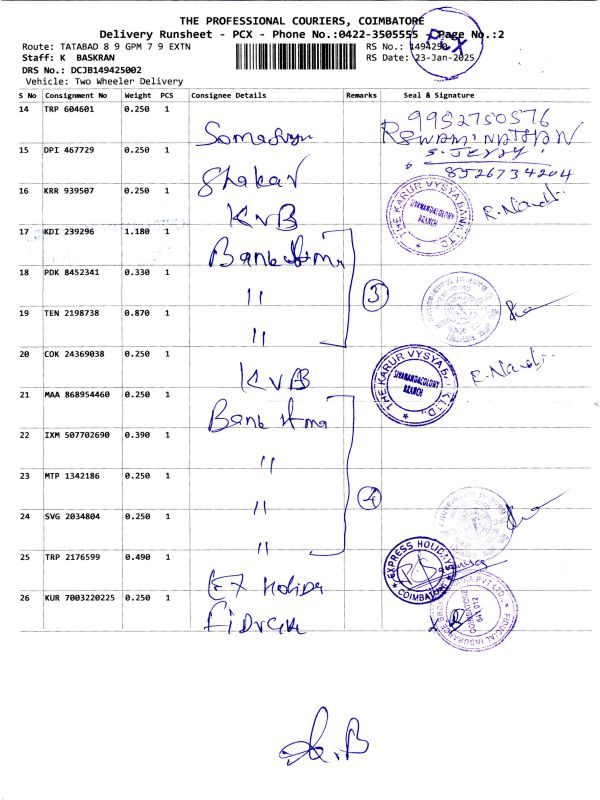 THE PROFESSIONAL COURIERS, COIMBATORE
Delivery Runsheet - PCX - Phone No.:0422-3505555 - Page No.:2
Route: TATABAD 8 9 GPM 7 9 EXTN RS No.: 1494250
Staff: K BASKRAN RS Date: 23-Jan-2025
DRS No.: DCJB149425002
Vehicle: Two Wheeler Delivery
S No Consignment No Weight PCS Consignee Details Remarks Seal & Signature
14 TRP 604601 0.250 1 9952750576
RSWAMINATHAN
15 DPI 467729 0.250 1 S. JERRY
8526734204
16 KRR 939507 0.250 1 KVB THE KARUR VYSYA BANK LTD. SIVANANDACOLONY BRANCH R. Nandi
17 KDI 239296 1.180 1 Bank
18 PDK 8452341 0.330 1 " 3
19 TEN 2198738 0.870 1 "
20 COK 24369038 0.250 1 KVB THE KARUR VYSYA BANK LTD. SIVANANDACOLONY BRANCH R. Nandi
21 MAA 868954460 0.250 1 Bank
22 IXM 507702690 0.390 1 "
23 MTP 1342186 0.250 1 " 4
24 SVG 2034804 0.250 1 "
25 TRP 2176599 0.490 1 EXPRESS HOLIDAYS COIMBATORE
26 KUR 7003220225 0.250 1